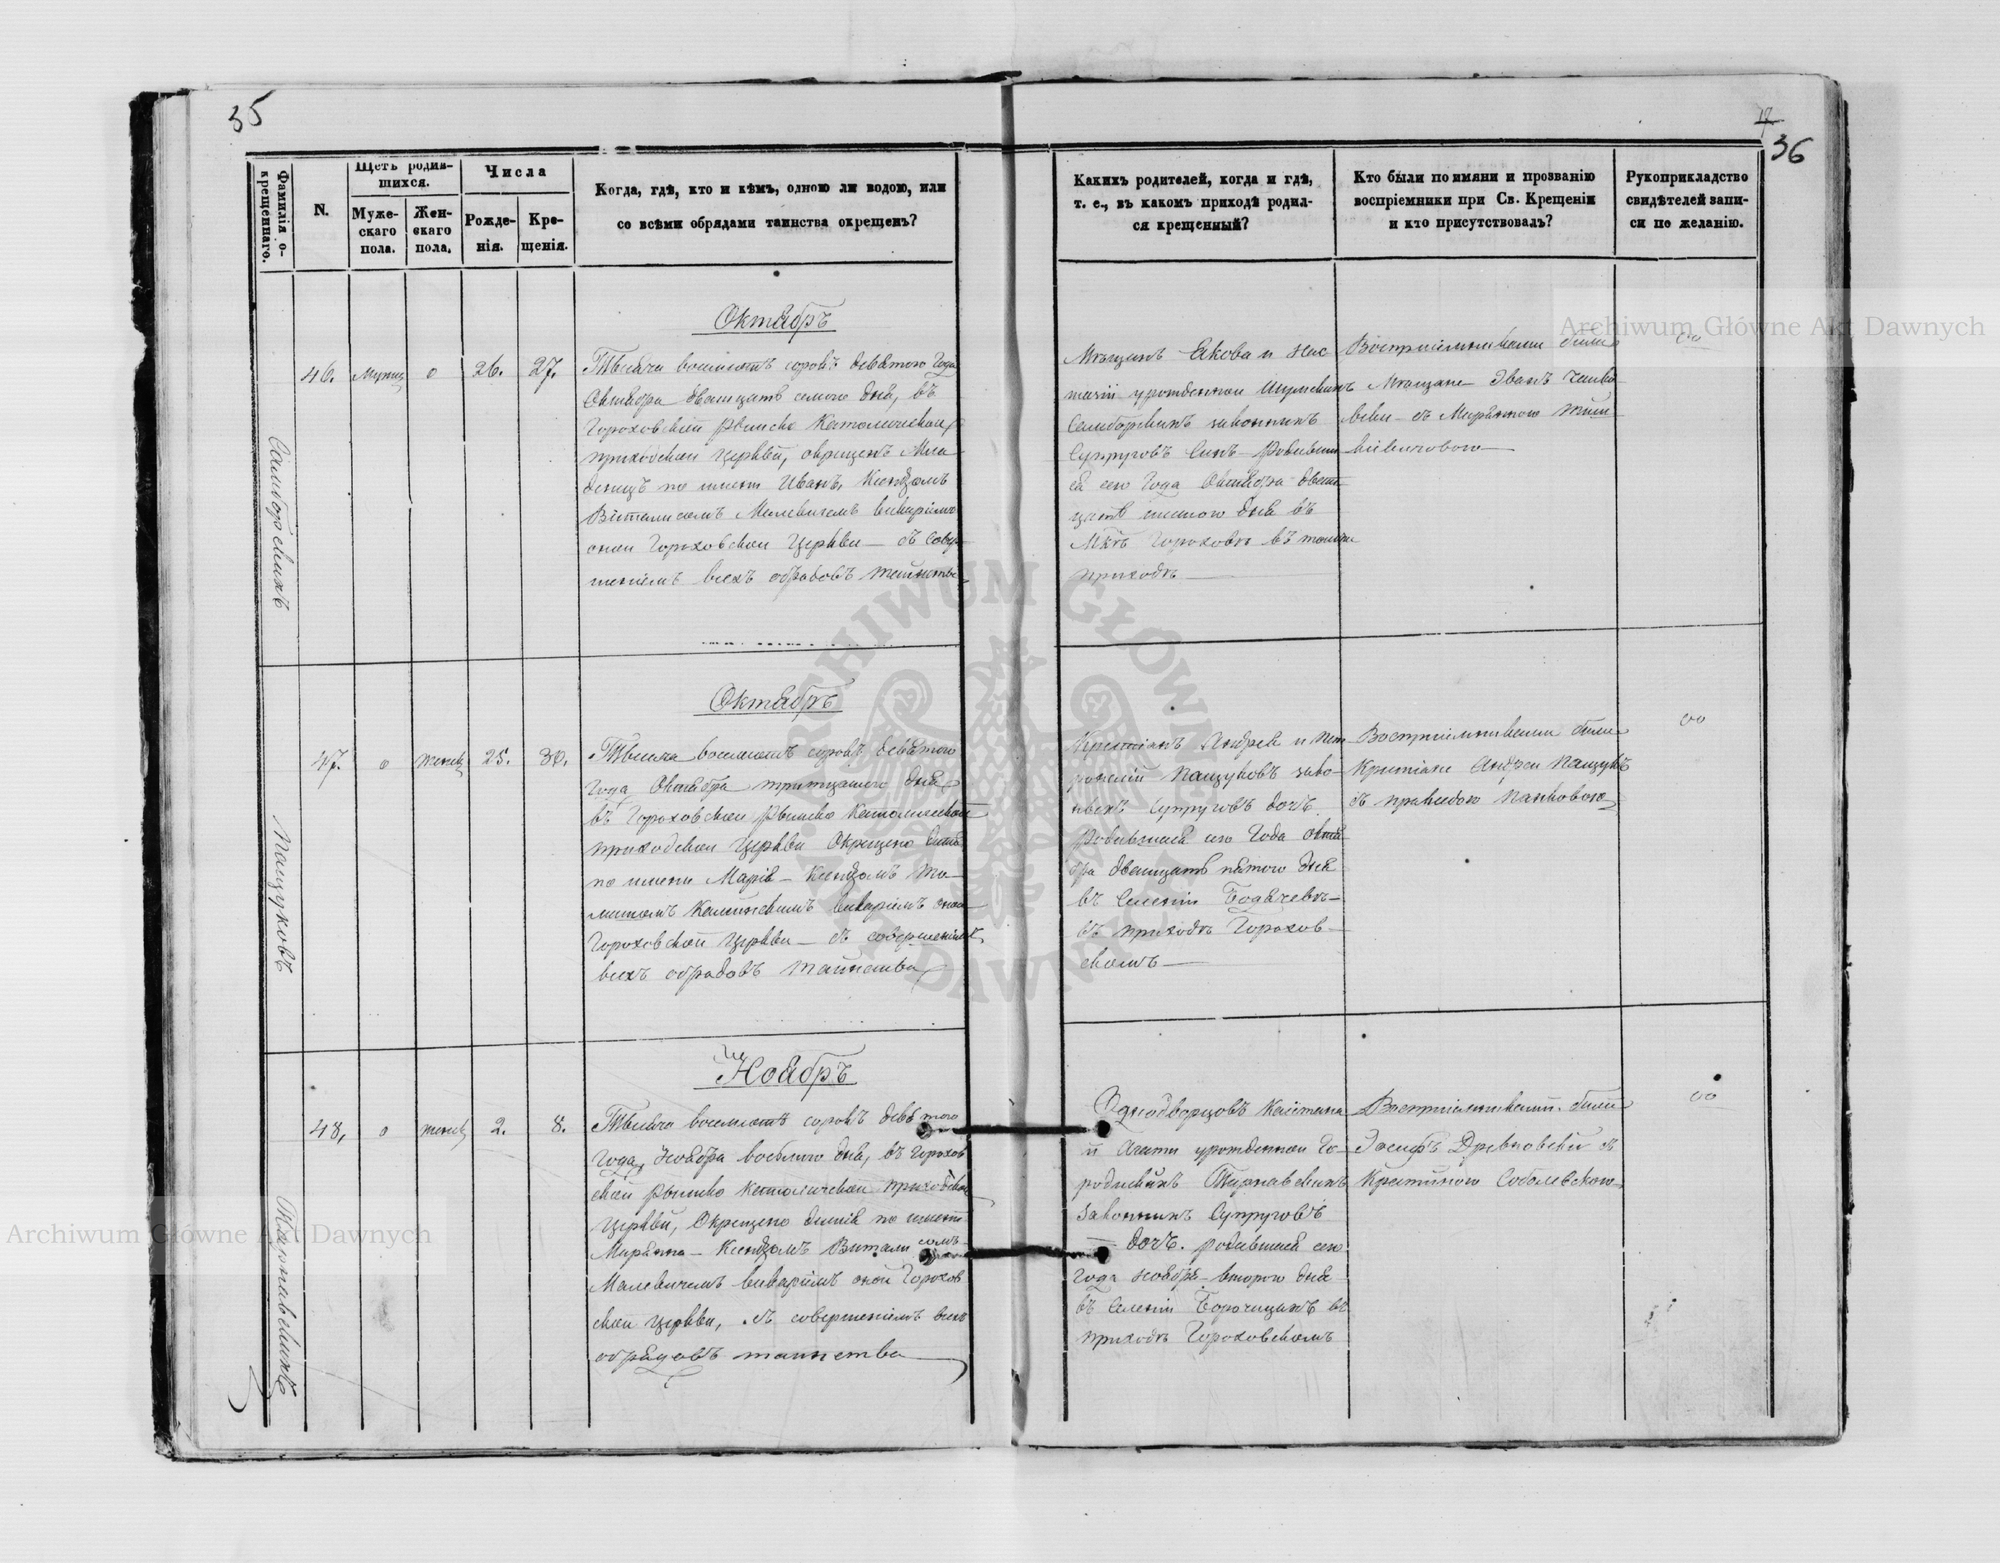 35
36
17
Фамилія о-
крещеннаго.
N.
Щетъ родив-
шихся.
Муже-
скаго
пола.
Жен-
скаго
пола.
Числа
Рожде-
нія.
Кре-
щенія.
Когда, гдѣ, кто и кѣмъ, одною ли водою, или
со всѣми обрядами таинства окрещенъ?
Какихъ родителей, когда и гдѣ,
т. е., въ какомъ приходѣ родил-
ся крещенный?
Кто были по имяни и прозванію
воспріемники при Св. Крещеніи
и кто присутствовалъ?
Рукоприкладство
свидѣтелей запи-
си по желанію.
Archiwum Główne Akt Dawnych
Октябръ
46. 0 26. 27.
Самборскихъ
Тысяча восемсотъ сорокъ девятого Года
Октября дватцать семого дня, въ
Гороховской Римско Католической
приходской Церкви, окрищенъ Мла
денецъ по имени Иванъ, Ксендзомъ
Виталисомъ Малевичемъ викаріемъ
оной Гороховской Церкви - съ совер-
шеніемъ всехъ обрядовъ тайнства
Мѣщанъ Якова и Нас
тазіи урожденной
Самборскихъ законныхъ
Супруговъ Сынъ - родивший
ся сего Года Октября дват
цать шостого дня въ
Мкѣ Гороховѣ въ томже
приходѣ
Воспріемниками были
Мѣщане Иванъ
съ Маріянною
Октябръ
47. 0 25. 30.
Пащуковъ
Тысяча восемсотъ сорокъ девятого
Года Октября тритцатого дня
въ Гороховской Римско Католической
приходской Церкви Окрищено дитя
по имени Марія - Ксендзомъ
викаріемъ оной
Гороховской Церкви - съ совершеніемъ
всехъ обрядовъ тайнства
Крестіянъ Андрея и Пет
ронелій Пащуковъ зако-
ныхъ Супруговъ дочъ
Родившаяся сего Года Октя
бря дватцать пятого дня
въ Селеніи Бодячевъ-
въ приходѣ Горохов-
скомъ
Воспріемниками были
Крестіяне Андрей Пащукъ
съ Панковою
Ноябръ
48, 0 2. 8.
Тарнавскихъ
Тысяча восемсотъ сорокъ девятого
Года, Ноября восьмого дня, въ Горохов
ской Римско Католической приходской
Церкви, Окрещено дитя по имени
Маріянна - Ксендзомъ Виталисомъ
Малевичемъ викаріемъ оной Горохов
ской Церкви, съ совершеніемъ всехъ
обрядовъ таинства
Однодворцовъ Каетана
и Агаты урожденной Го-
родискихъ Тарнавскихъ
законныхъ Супруговъ
дочъ. родившаяся сего
Года Ноября второго дня
въ Селеніи въ
приходѣ Гороховскомъ
Воспріемниками были
Іосифъ Древновскій съ
Крестиною Соболевскою
Archiwum Główne Akt Dawnych
ARCHIWUM GŁÓWNE AKT DAWNYCH